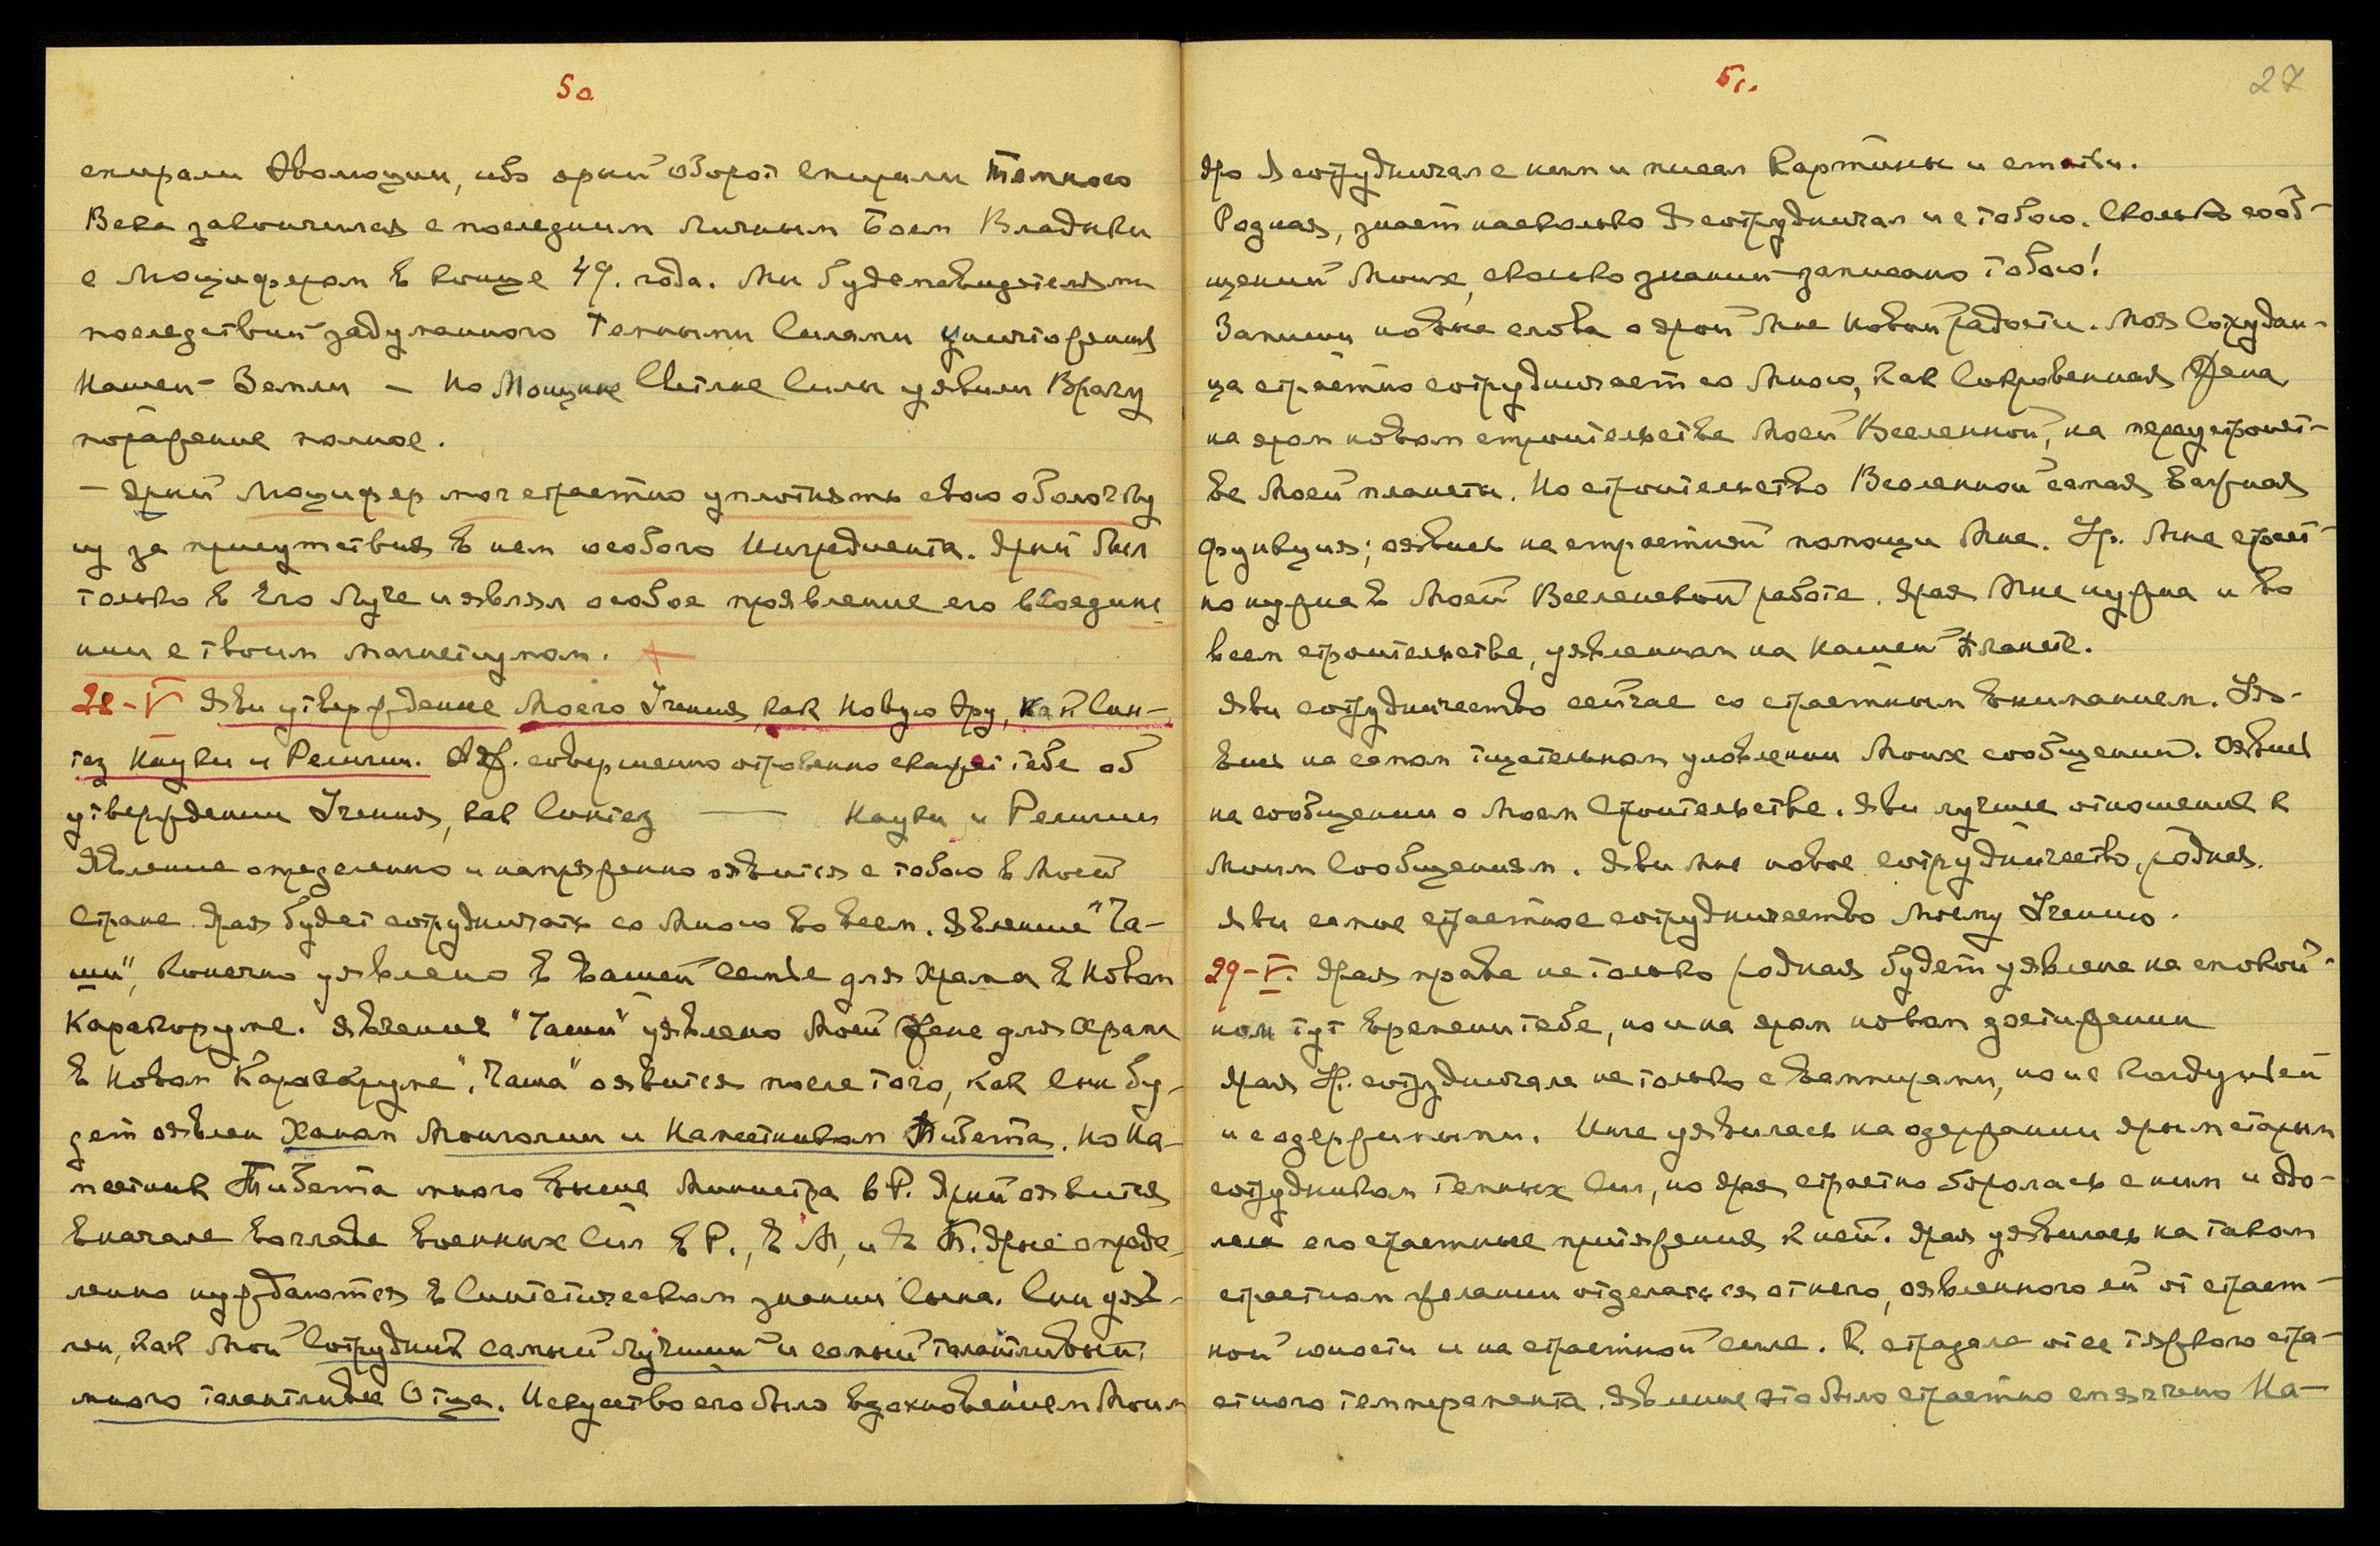 50
спирали Эволюции, ибо ярый оборот спирали Темного
Века закончился с последним личным Боем Владыки
с Люцифером в конце 49. года. Мы будем свидетелями
последствий задуманного Темными Силами уничтожения
нашей Земли — Но Мощные Светлые Силы уявили Врагу
поражение полное.
— Ярый Люцифер мог страстно уплотнять свою оболочку
из за присутствия в нем особого Ингредиента. Ярый был
только в Его Луче и являл особое проявление его в соедине-
нии с твоим магнетизмом. +
28-V Яви утверждение Моего Учения, как Новую Эру, как Син-
тез Науки и Религии. совершенно откровенно скажет тебе об
утверждении Учения, как Синтез —— Науки и Религии
Явление определенно и напряженно оявится с тобою в Моей
Стране. Ярая будет сотрудничать со Мною во всем. Явление "Ча-
ши", конечно уявлено в вашей семье для Храма в Новом
Каракоруме. Явление "Чаши" уявлено Моей Жене для охраны
в Новом Каракоруме". "Чаша" оявится после того, как Сын бу-
дет оявлен Ханом Монголии и Наместником Тибета. Но На-
местник Тибета много выше Министра в Р. Ярый оявится
вначале во главе Военных Сил в Р., в М, и в Т. Ярые опреде-
ленно нуждаются в Синтетическом знании Сына. Сын уяв-
лен, как Мой Сотрудник самый лучший и самый талантливый,
много талантливее Отца. Искусство его было вдохновением Моим
51. 27
Яро Я сотрудничал с ним и писал Картины и статьи.
Родная, знает насколько Я сотрудничал и с тобою. Сколько сооб-
щений Моих, сколько знаний записано тобою!
Запиши новые слова о ярой Мне новой радости. Моя Сотрудни-
ца страстно сотрудничает со Мною, как Сокровенная Жена
на яром новом строительстве Моей Вселенной, на переустройст-
ве Моей планеты. Но строительство Вселенной самая важная
функция; оявись на страстной помощи Мне. Ур. Мне страст-
но нужна в Моей Вселенской работе. Ярая Мне нужна и во
всем строительстве, уявленном на нашей Планете.
Яви сотрудничество сейчас со страстным вниманием. Уя-
вись на самом тщательном уловлении Моих сообщений. Оявись
на сообщении о Моем Строительстве. Яви лучшее отношение к
Моим Сообщениям. Яви Мне новое сотрудничество, родная.
Яви самое страстное сотрудничество Моему Учению.
29-V. Ярая права не только родная будет уявлена на спокой-
ном тут времени тебе, но и на яром новом достижении
Ярая Ур. сотрудничала не только с вампирами, но и с колдуньей
и с одержимыми. Инге уявилась на одержании ярым старым
сотрудником темных Сил, но ярая страстно боролась с ним и одо-
лела его страстные притяжения к ней. Ярая уявилась на таком
страстном желании отделаться от него, оявленного ей от страст-
ной юности и на страстной силе. К. страдала от ее тяжкого стра-
стного темперамента. Явление это было страстно смягчено На-